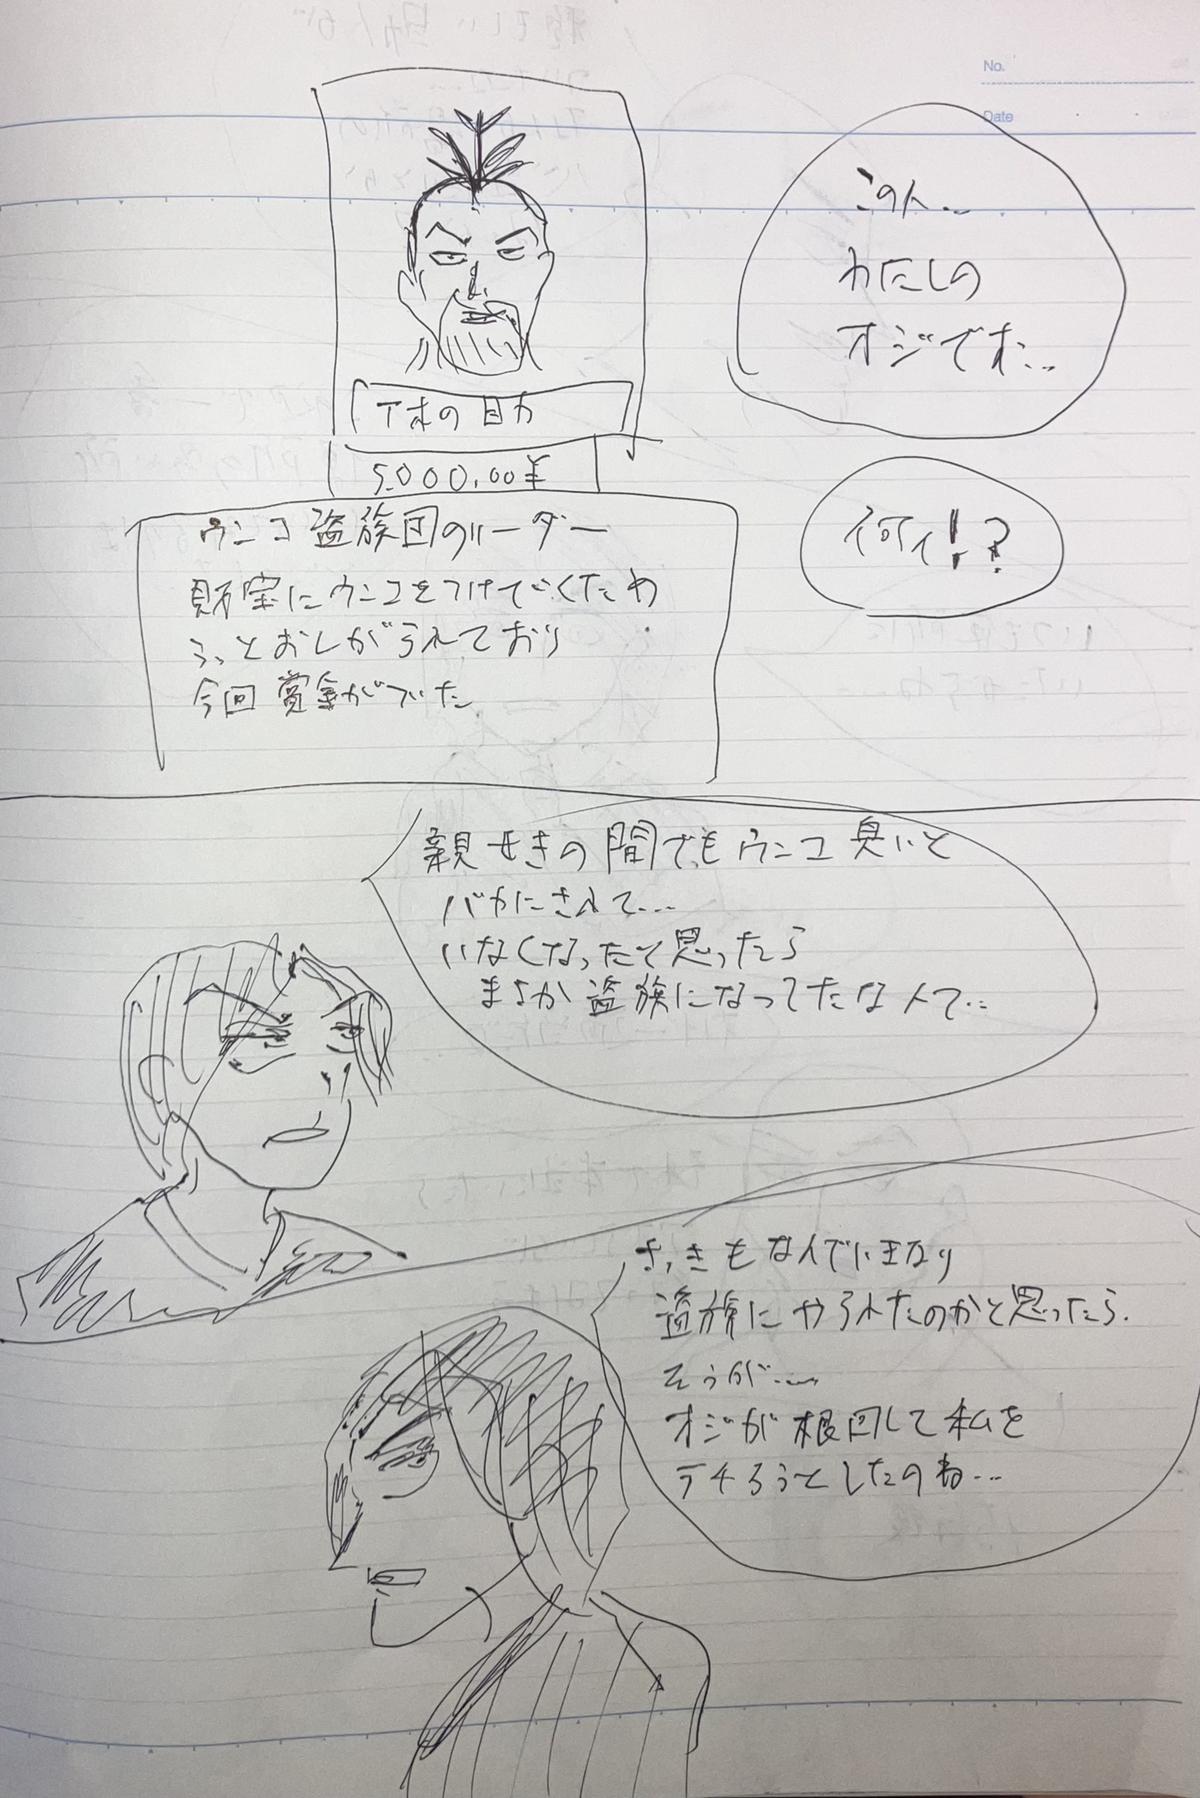 No.
Date
この人...
わたしの
オジです...
何ィ!?
下水の目力
5,000,00¥
ウンコ盗族団のリーダー
財宝にウンコをつけていくため
おしがられており
今回賞金がついた
親せきの間でもウンコ臭いと
バカにされて...
いなくなったと思ったら
まさか盗族になってたなんて...
さっきもなんでいきなり
盗族にやられたのかと思ったら.
そうか...
オジが根回しして私を
したのね...